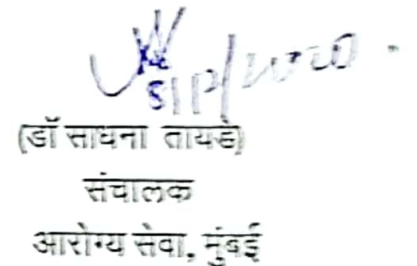 (डॉ साधना तायडे)
संचालक
आरोग्य सेवा, मुंबई